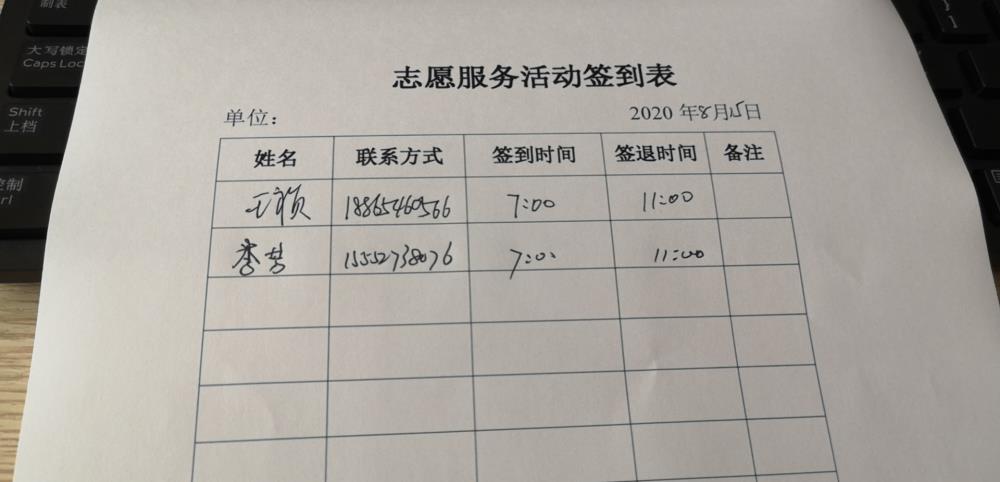 制表
大写锁定
Caps Loc
Shift
上档
控制
rl
志愿服务活动签到表
单位：
2020 年8月15日
姓名 联系方式 签到时间 签退时间 备注
王颖 18865460566 7:00 11:00
李芸 15552738076 7:00 11:00